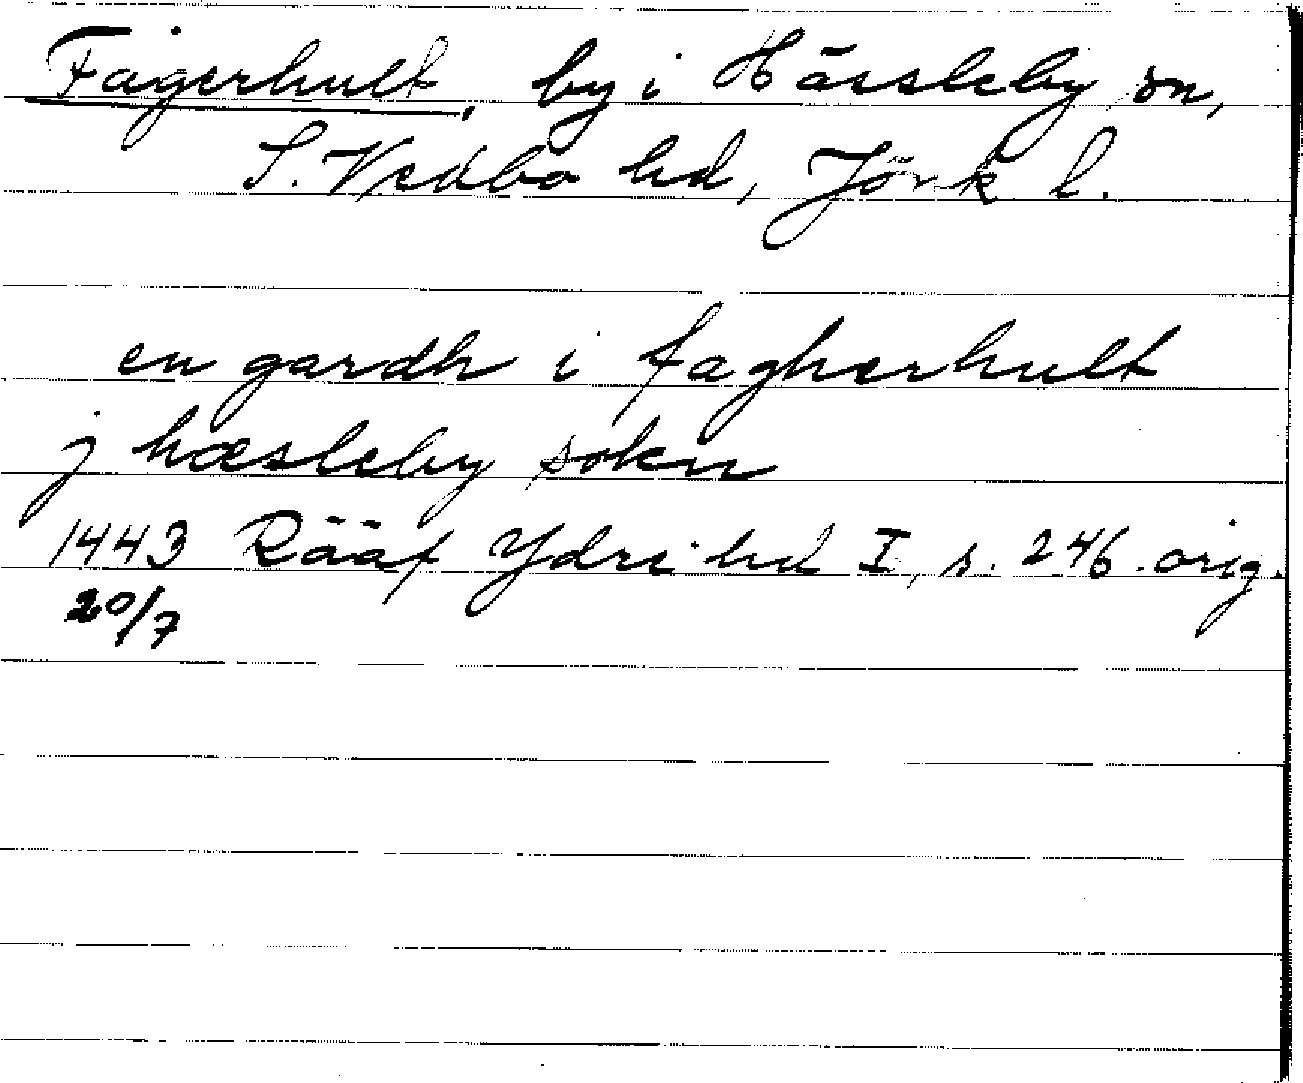 Fagerhult, by i Hässleby sn,
S. Vedbo hd, Jönk l.
en gardh i fagherhult
j hæsleby sokn
1443 Rääf Ydre hd I, s. 246. orig.
20/7